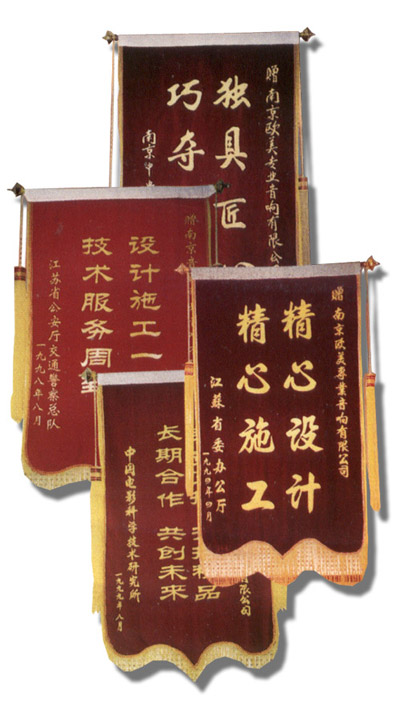 赠 南京欧美专业音响有限公
独具匠
巧夺
南京中
赠南京
设计施工一
技术服务周到
江苏省公安厅交通警察总队
一九九八年八月
赠 南京欧美專業音响有限公司
精心设计
精心施工
江苏省委办公厅
有限公司
精品
长期合作 共创未来
中国电影科学技术研究所
一九九九年八月